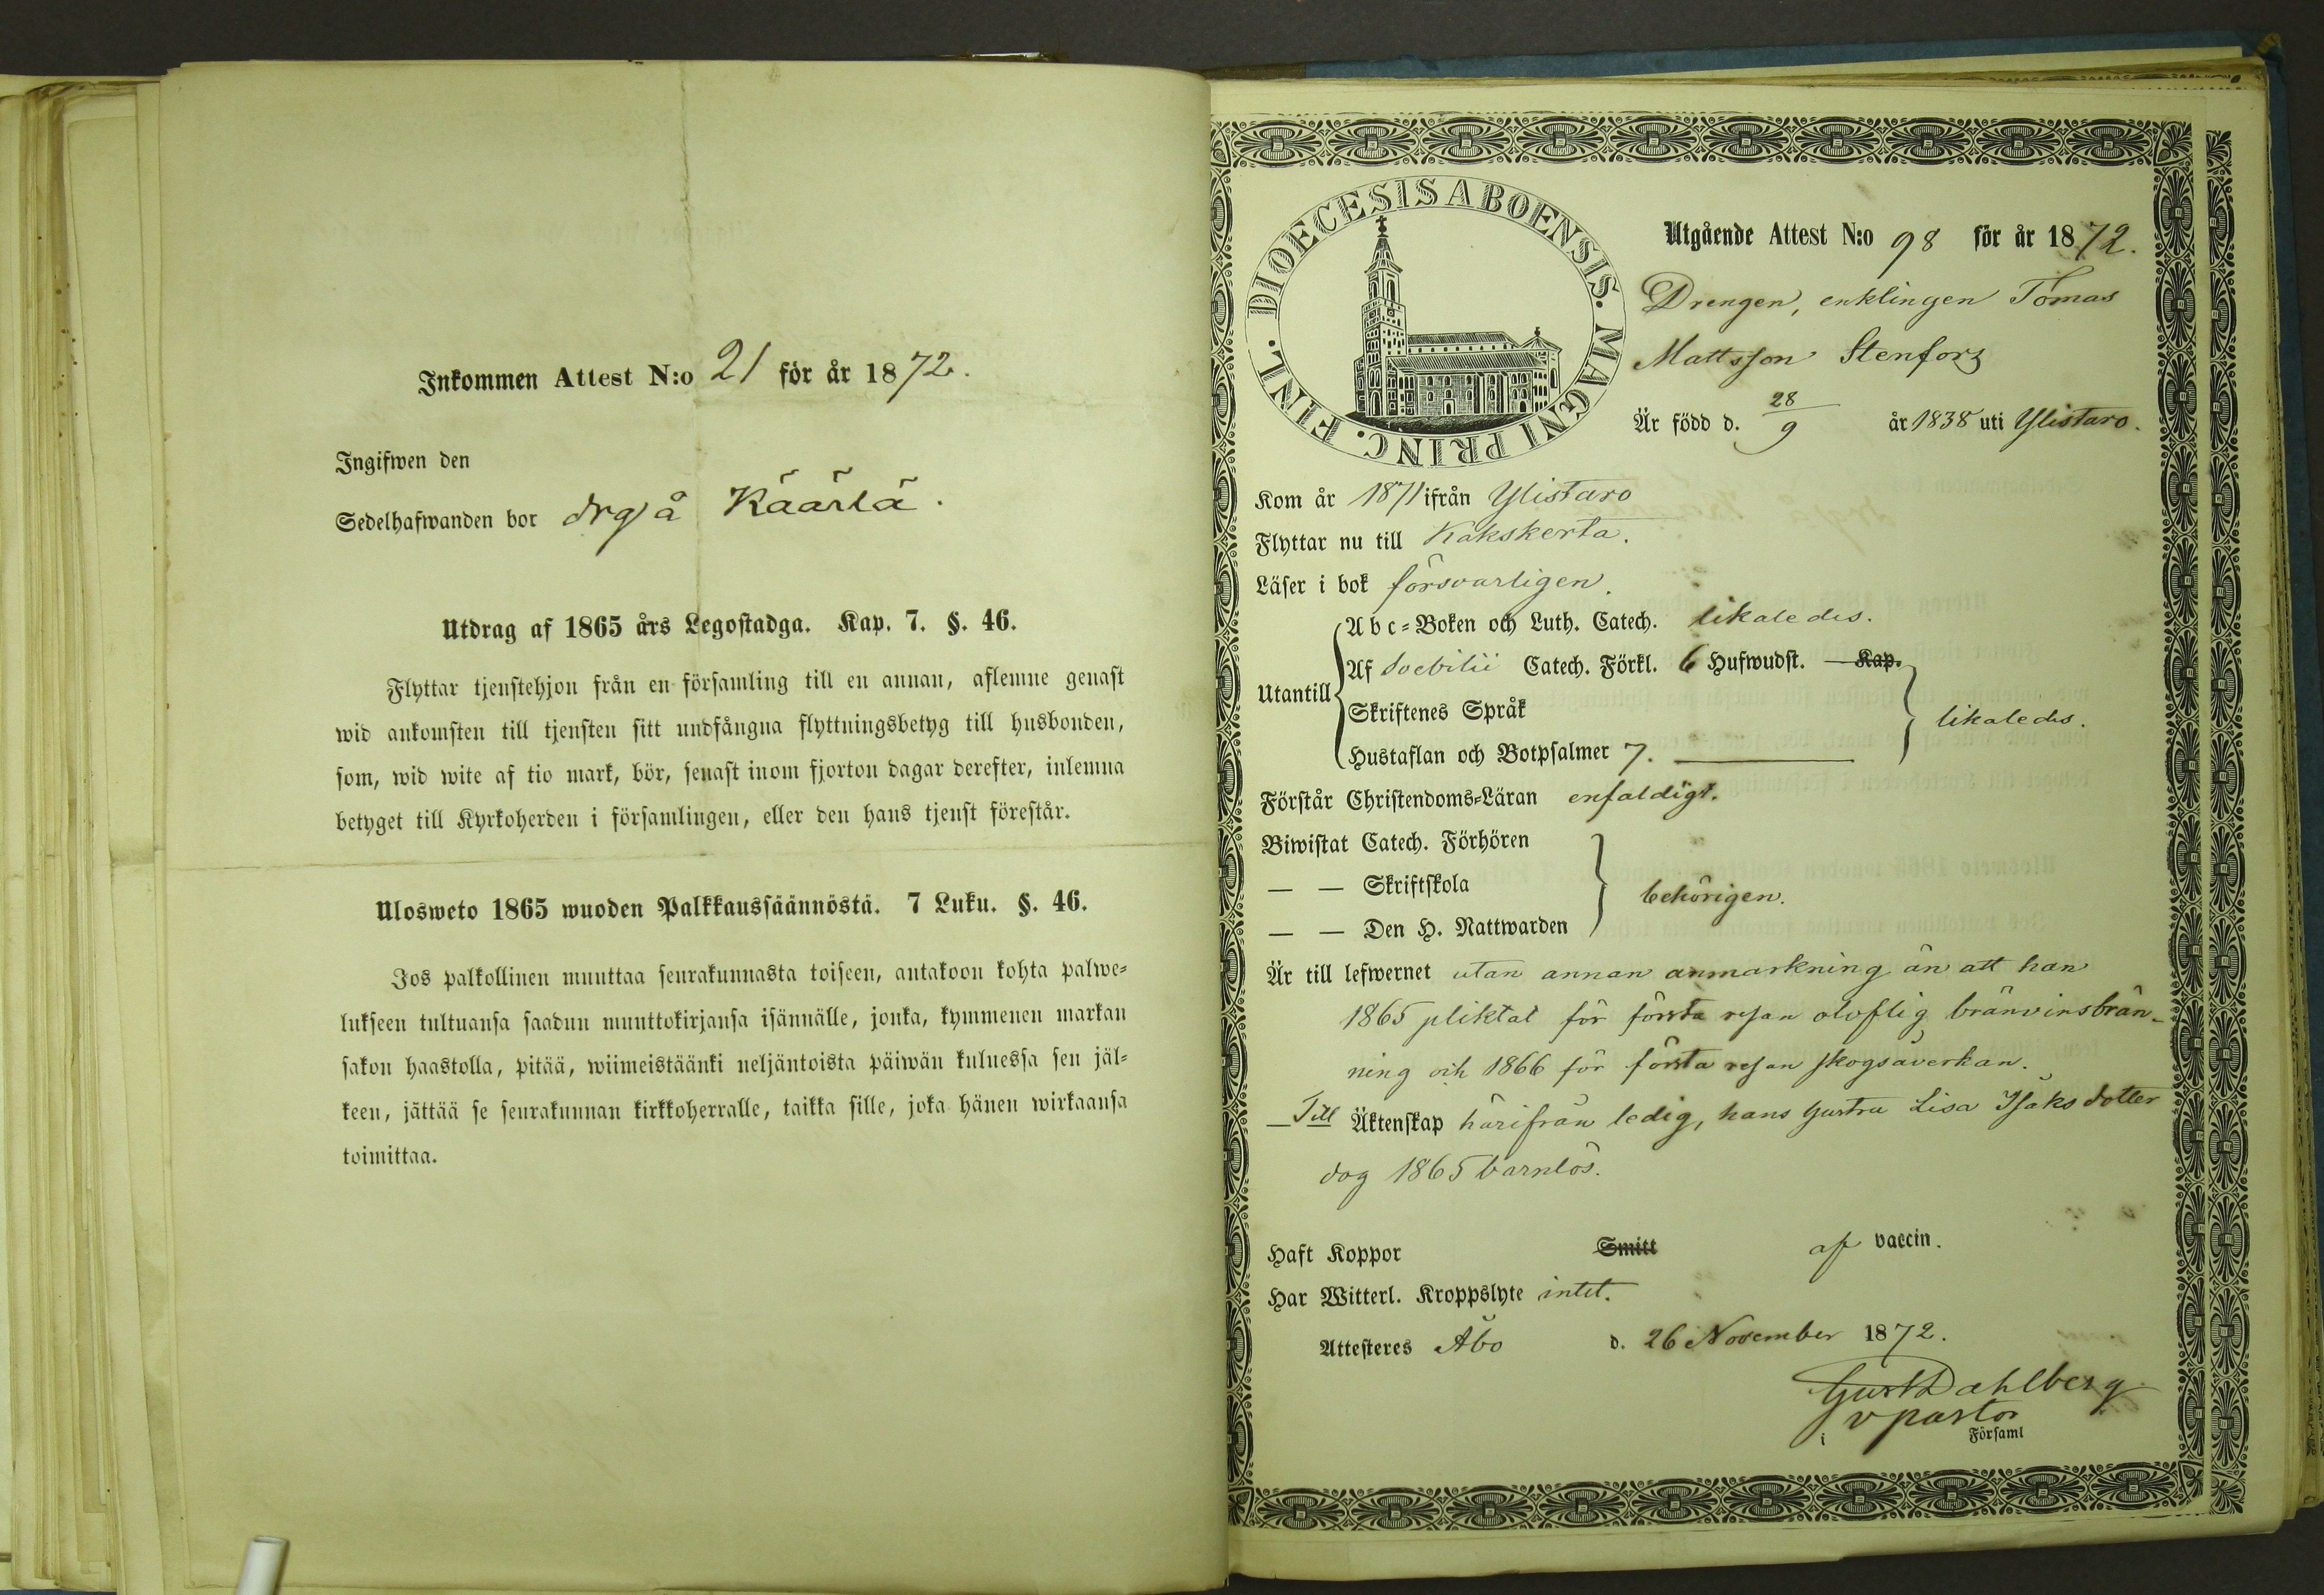 Inkommen Attest N:o 21 för år 1872.
Ingifwen den
Sedelhafwanden bor drg å Käärlä.
Utdrag af 1865 års Legostadga. Kap. 7. §. 46.
Flyttar tjenstehjon från en församling till en annan, aflemne genast
wid ankomsten till tjensten sitt undfångna flyttningsbetyg till husbonden,
som, wid wite af tio mark, bör, senast inom fjorton dagar derefter, inlemna
betyget till Kyrkoherden i församlingen, eller den hans tjenst förestår.
Ulosweto 1865 wuoden Palkkaussäännöstä. 7 Luku. §. 46.
Jos palkollinen muuttaa seurakunnasta toiseen, antakoon kohta palwe-
lukseen tultuansa saadun muuttokirjansa isännälle, jonka, kymmenen markan
sakon haastolla, pitää, wiimeistäänki neljäntoista päiwän kuluessa sen jäl-
keen, jättää se seurakunnan kirkkoherralle, taikka sille, joka hänen wirkaansa
toimittaa.
DIOECESIS ABOENSIS. MAGNI PRINC. FINL.
Utgående Attest N:o 98 för år 1872.
Drengen, enklingen Tomas
Mattsson Stenfors
Är född d. 28/9 år 1838 uti Ylistaro.
Kom år 1871 ifrån Ylistaro
Flyttar nu till Kakskerta.
Läser i bok försvarligen.
Utantill
Abc-Boken och Luth. Catech. likaledes.
Af Svebilii Catech. Förkl. 6 Hufwudst. Kap.
Skriftenes Språk
likaledes.
Hustaflan och Botpsalmer 7.
Förstår Christendoms-Läran enfaldigt.
Biwistat Catech. Förhören
— — Skriftskola
behörigen.
— — Den H. Nattwarden
Är till lefwernet utan annan anmärkning än att han
1865 pliktat för första resan oloflig bränvinsbrän-
ning och 1866 för första resan skogsåverkan.
Till Äktenskap härifrån ledig, hans hustru Lisa Isaksdotter
dog 1865 barnlös.
Haft Koppor Smitt af vaccin.
Har Witterl. Kroppslyte intet.
Attesteres Åbo d. 26 November 1872.
Gust Dahlberg
v pastor
i Församl